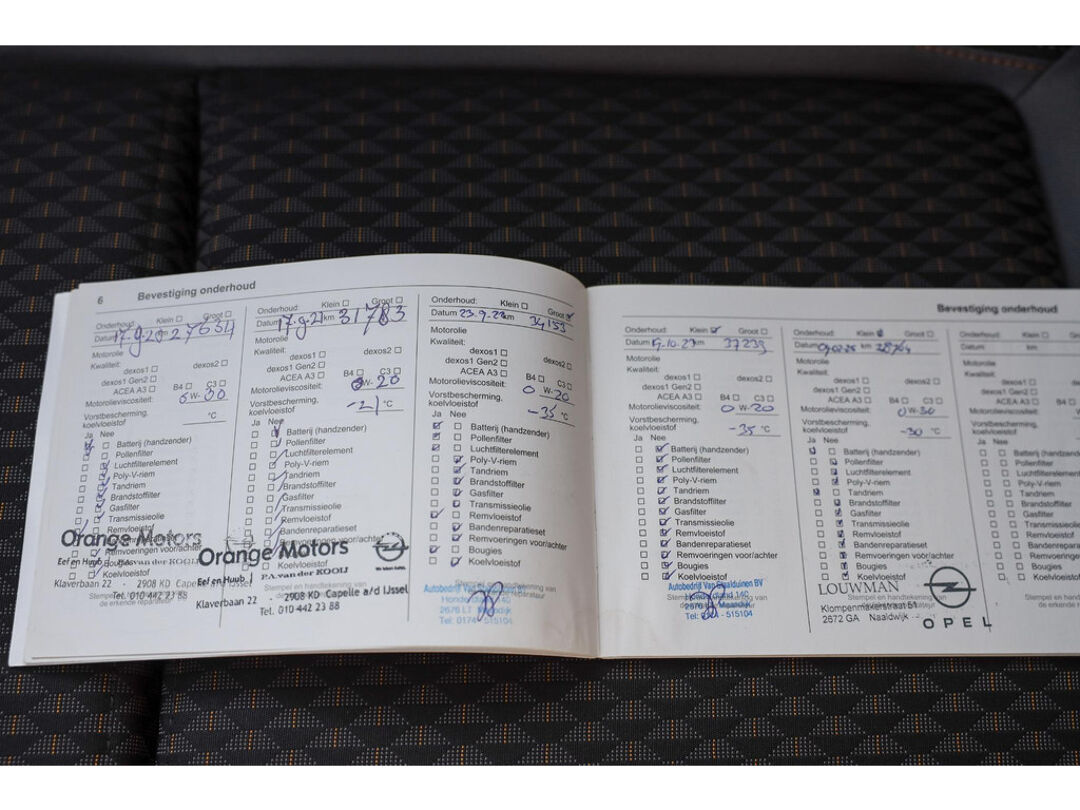 6 Bevestiging onderhoud
Onderhoud: Klein Groot
Datum 17.9.20 27631
Motorolie
Kwaliteit:
dexos1 dexos2
dexos1 Gen2
ACEA A3 B4 C3
Motorolieviscositeit: W-
Vorstbescherming,
koelvloeistof °C
Ja Nee
Batterij (handzender)
Pollenfilter
Luchtfilterelement
Poly-V-riem
Tandriem
Brandstoffilter
Gasfilter
Transmissieolie
Remvloeistof
Remvoeringen voor/achter
Bougies
Koelvloeistof
Orange Motors
Eef en Huub P.A. van der KOOIJ
Klaverbaan 22 - 2908 KD Capelle a/d IJssel
Tel. 010 442 23 88
Onderhoud: Klein Groot
Datum 17.9.21 km 31783
Motorolie
Kwaliteit:
dexos1 dexos2
dexos1 Gen2
ACEA A3 B4 C3
Motorolieviscositeit: 0 W-20
Vorstbescherming,
koelvloeistof -21 °C
Ja Nee
Batterij (handzender)
Pollenfilter
Luchtfilterelement
Poly-V-riem
Tandriem
Brandstoffilter
Gasfilter
Transmissieolie
Remvloeistof
Bandenreparatieset
Remvoeringen voor/achter
Koelvloeistof
Orange Motors
Eef en Huub P.A. van der KOOIJ
Klaverbaan 22 - 2908 KD Capelle a/d IJssel
Tel. 010 442 23 88
Onderhoud: Klein Groot
Datum 23.9.22 km 34153
Motorolie
Kwaliteit:
dexos1 dexos2
dexos1 Gen2
ACEA A3 B4 C3
Motorolieviscositeit: 0 W-20
Vorstbescherming,
koelvloeistof -35 °C
Ja Nee
Batterij (handzender)
Pollenfilter
Luchtfilterelement
Poly-V-riem
Tandriem
Brandstoffilter
Gasfilter
Transmissieolie
Remvloeistof
Bandenreparatieset
Remvoeringen voor/achter
Bougies
Koelvloeistof
Autobedrijf Van BV
140
2676 LT
Tel: 0174 - 515104
Bevestiging onderhoud
Onderhoud: Klein Groot
Datum 5-10-23 km 37239
Motorolie
Kwaliteit:
dexos1 dexos2
dexos1 Gen2
ACEA A3 B4 C3
Motorolieviscositeit: 0 W-20
Vorstbescherming,
koelvloeistof -35 °C
Ja Nee
Batterij (handzender)
Pollenfilter
Luchtfilterelement
Poly-V-riem
Tandriem
Brandstoffilter
Gasfilter
Transmissieolie
Remvloeistof
Bandenreparatieset
Remvoeringen voor/achter
Bougies
Koelvloeistof
Autobedrijf Van BV
140
Maasdijk
Tel: 0174 - 515104
Onderhoud: Klein Groot
Datum km
Motorolie
Kwaliteit:
dexos1 dexos2
dexos1 Gen2
ACEA A3 B4 C3
Motorolieviscositeit: 0 W-30
Vorstbescherming,
koelvloeistof -30 °C
Ja Nee
Batterij (handzender)
Pollenfilter
Luchtfilterelement
Poly-V-riem
Tandriem
Brandstoffilter
Gasfilter
Transmissieolie
Remvloeistof
Bandenreparatieset
Remvoeringen voor/achter
Bougies
Koelvloeistof
LOUWMAN
Stempel en handtekening van
Klompenmakerstraat 51
2672 GA Naaldwijk
OPEL
Onderhoud: Klein
Datum km
Motorolie
Kwaliteit:
dexos1
dexos1 Gen2
ACEA A3 B4
Motorolieviscositeit:
Vorstbescherming,
koelvloeistof
Ja Nee
Batterij (handzender)
Pollenfilter
Luchtfilterelement
Poly-V-riem
Tandriem
Brandstoffilter
Gasfilter
Transmissieolie
Remvloeistof
Bandenreparatieset
Remvoeringen voor/achter
Bougies
Koelvloeistof
Stempel en handtekening
de erkende reparateur